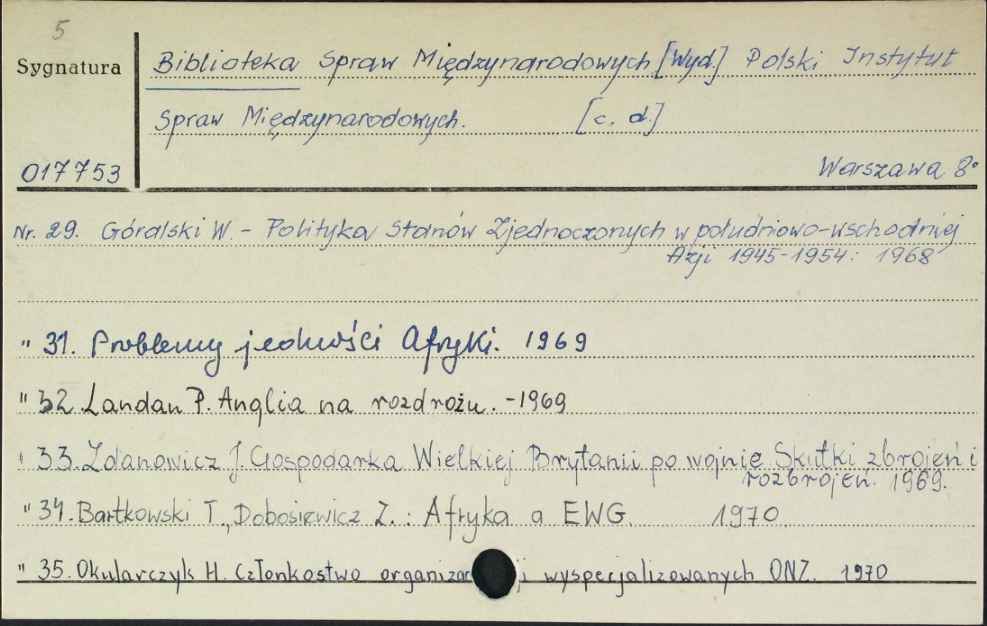 5
Sygnatura
Biblioteka Spraw Międzynarodowych [Wyd.] Polski Instytut
Spraw Międzynarodowych. [c. d.]
017753
Warszawa 8°
Nr. 29. Góralski W. - Polityka Stanów Zjednoczonych w południowo-wschodniej
Azji 1945-1954: 1968
" 31. Problemy jedności Afryki. 1969
" 32. Landau P. Anglia na rozdrożu. - 1969
" 33. Zdanowicz J. Gospodarka Wielkiej Brytanii po wojnie Skutki zbrojeń i
rozbrojeń. 1969.
" 34. Bartkowski T., Dobosiewicz Z.: Afryka a EWG. 1970
" 35. Okularczyk H. Członkostwo wyspecjalizowanych ONZ. 1970